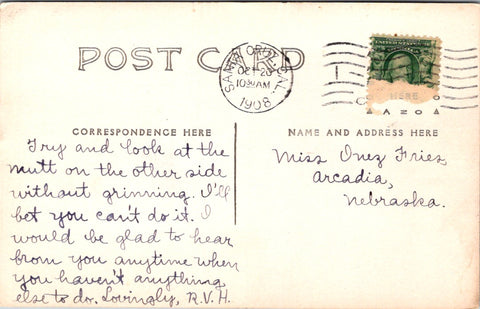 POST CARD
SANTA CRUZ, CAL.
OCT 20
10 AM
1908
HERE
CORRESPONDENCE HERE
NAME AND ADDRESS HERE
Try and look at the
mutt on the other side
without grinning. I'll
bet you can't do it. I
would be glad to hear
from you anytime when
you haven't anything
else to do. Lovingly, R.V.H.
Miss Inez Fries,
Arcadia,
Nebraska.